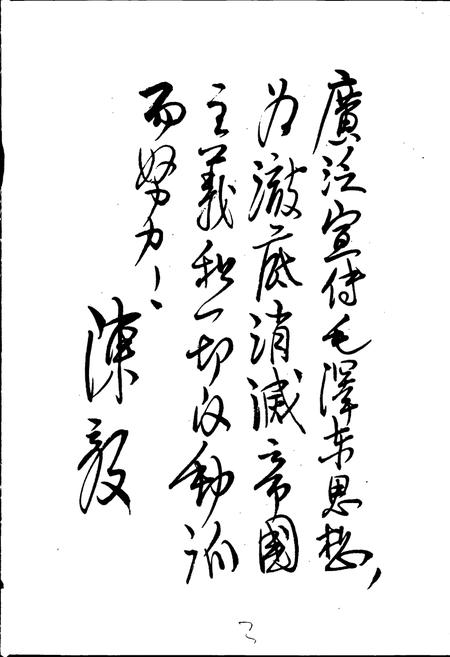 廣泛宣传毛澤东思想，
为澈底消滅帝國
主義和一切反動派
而努力！
陳毅